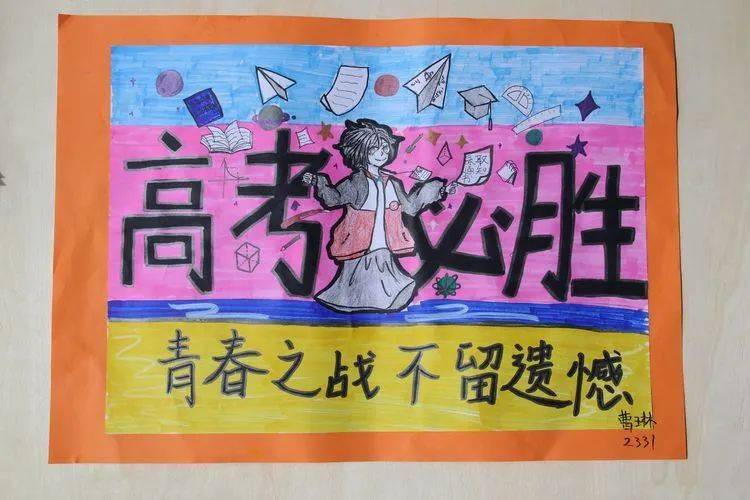 高考必胜
青春之战 不留遗憾
曹琳
2331